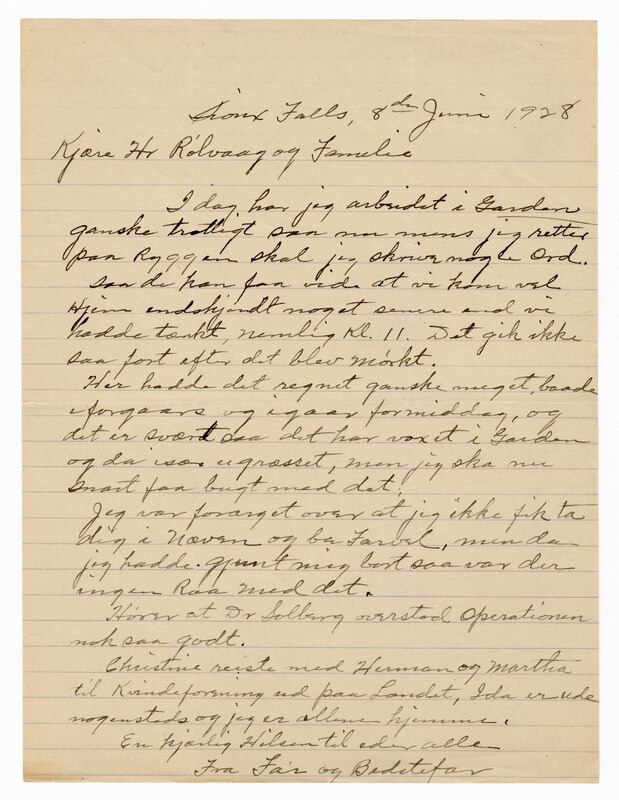 Sioux Falls, 8de Juni 1928
Kjære Hr Rølvaag og Familie
I dag har jeg arbeidet i Garden
ganske trottigt saa nu mens jeg retter
paa Ryggen skal jeg skrive nogle Ord.
saa de kan faa vide at vi kom vel
Hjem endskjøndt noget senere end vi
hadde tænkt, nemlig Kl. 11. Det gik ikke
saa fort efter det blev Mørkt.
Her hadde det regnet ganske meget, baade
iforgaars og igaar formiddag, og
det er svært saa det har voxet i Garden
og da især ugræsset, men jeg ska nu
snart faa bugt med det.
Jeg var forarget over at jeg ikke fik ta
dig i Næven og be Farvel, men da
jeg hadde gjemt mig bort saa var der
ingen Raa med det.
Hører at Dr Solberg overstod Operationen
nok saa godt.
Christine reiste med Herman og Martha
til Kvindeforening ud paa Landet, Ida er ude
nogensteds og jeg er allene hjemme.
En kjærlig Hilsen til eder alle
Fra Far og Bedstefar